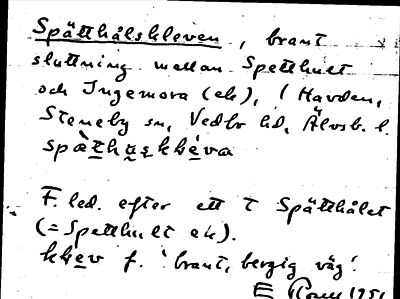 Spätthålskleven, brant
sluttning mellan Spetthult
och Ingemora (ek), i Havden,
Steneby sn, Vedbo hd, Älvsb. l.
spàthạskkléva
F. led. efter ett T Spätthålet
(= Spetthult ek).
klev f. 'brant, bergig väg'.
E 1951